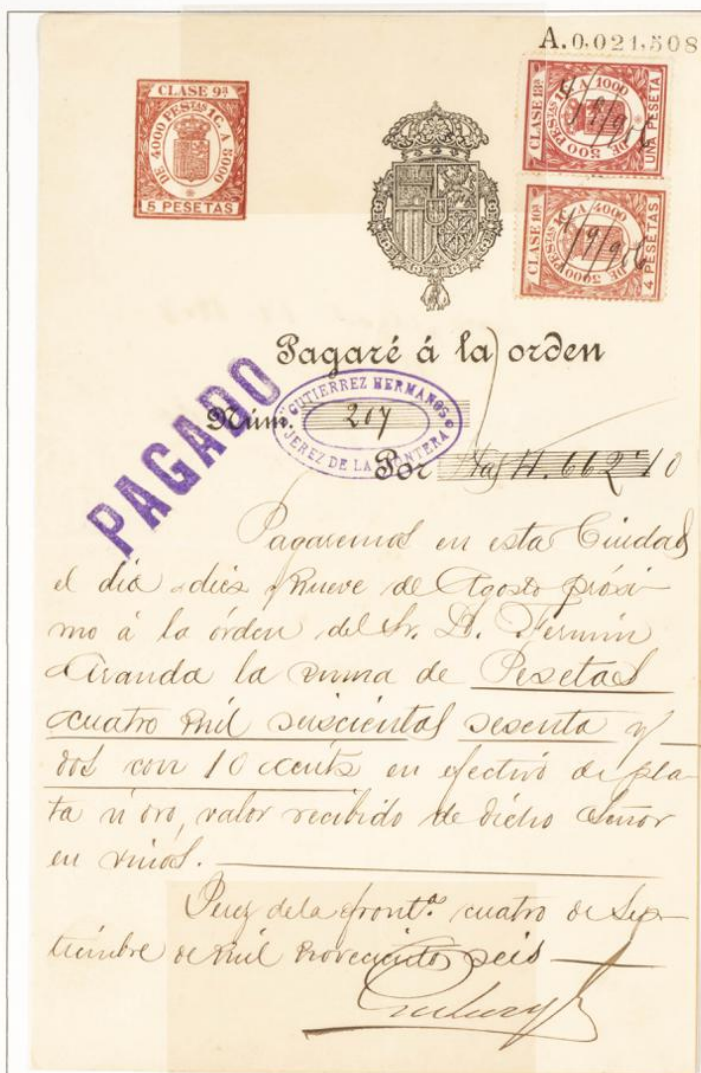 A.0,021,508
CLASE 9ª
DE 4000 PESTAS 1 C. A 5000
5 PESETAS
CLASE 13ª
500 PESTAS 1 C. A 1000
UNA PESETA
4/9/906
CLASE 10ª
DE 3000 PESTAS 1 C. A 4000
4 PESETAS
4/9/906
Pagaré á la orden
PAGADO
Núm. 207
GUTIERREZ HERMANOS
JEREZ DE LA FRONTERA
Por Ptas 4.662'10
Pagaremos en esta Ciudad
el dia diez y nueve de Agosto próxi-
mo á la órden del Sr. D. Fermin
Aranda la suma de Pesetas
cuatro mil seiscientas sesenta y
dos con 10 cents en efectivo de pla-
ta ú oro, valor recibido de dicho Señor
en vinos.
Jerez de la front.ª cuatro de Sep-
tiembre de mil novecientos seis